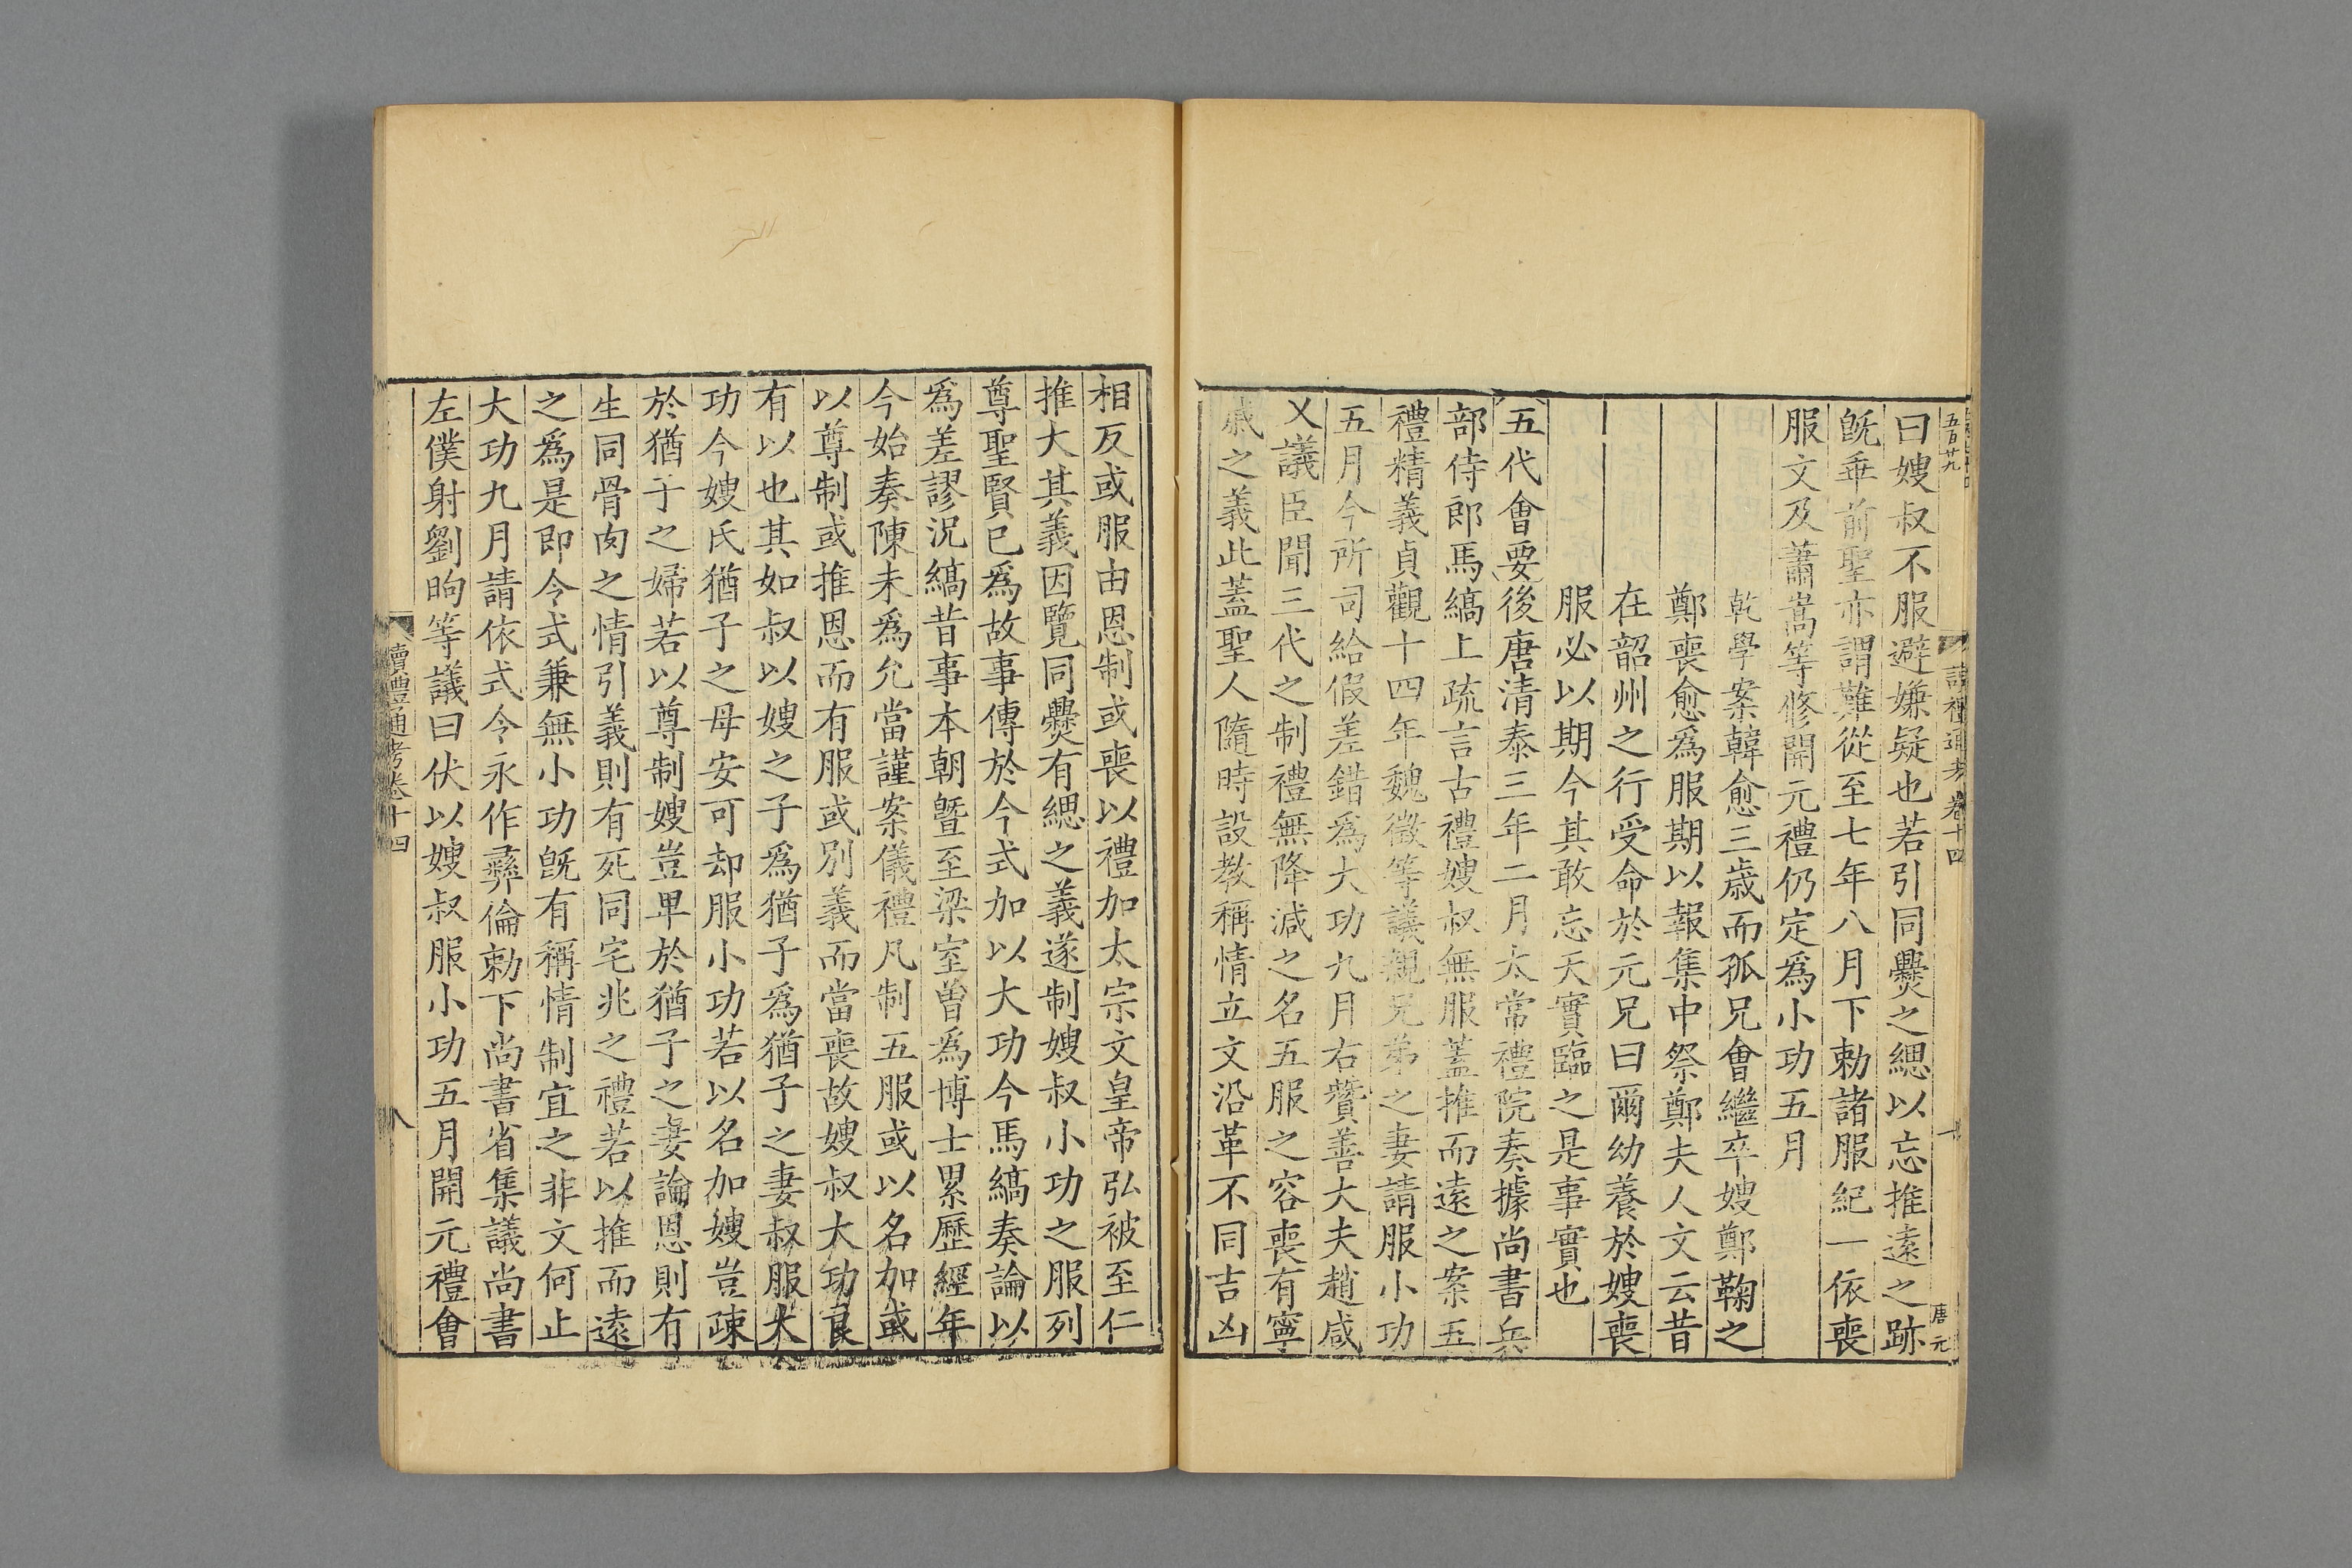 曰嫂叔不服避嫌疑也若引同爨之緦以忘推遠之跡
既乖前聖亦謂難從至七年八月下勅諸服紀一依喪
服文及蕭嵩等修開元禮仍定爲小功五月
乾學案韓愈三歲而孤兄會繼卒嫂鄭鞠之
鄭喪愈爲服期以報集中祭鄭夫人文云昔
在韶州之行受命於元兄曰爾幼養於嫂喪
服必以期今其敢忘天實臨之是事實也
五代會要後唐清泰三年二月太常禮院奏據尚書兵
部侍郎馬縞上疏言古禮嫂叔無服蓋推而遠之案五
禮精義貞觀十四年魏徵等議親兄弟之妻請服小功
五月今所司給假差錯爲大功九月右贊善大夫趙咸
乂議臣聞三代之制禮無降減之名五服之容喪有寧
戚之義此蓋聖人隨時設教稱情立文沿革不同吉凶
相反或服由恩制或喪以禮加太宗文皇帝弘被至仁
推大其義因覽同爨有緦之義遂制嫂叔小功之服列
尊聖賢已爲故事傳於今式加以大功今馬縞奏論以
爲差謬況縞昔事本朝曁至梁室曾爲博士累歷經年
今始奏陳未爲允當謹案儀禮凡制五服或以名加或
以尊制或推恩而有服或別義而當喪故嫂叔大功良
有以也其如叔以嫂之子爲猶子爲猶子之妻叔服大
功今嫂氏猶子之母安可却服小功若以名加嫂豈疎
於猶子之婦若以尊制嫂豈卑於猶子之妻論恩則有
生同骨肉之情引義則有死同宅兆之禮若以推而遠
之爲是即令式兼無小功旣有稱情制宜之非文何止
大功九月請依式令永作彞倫勅下尚書省集議尚書
左僕射劉昫等議曰伏以嫂叔服小功五月開元禮會
讀禮通考卷十四
八